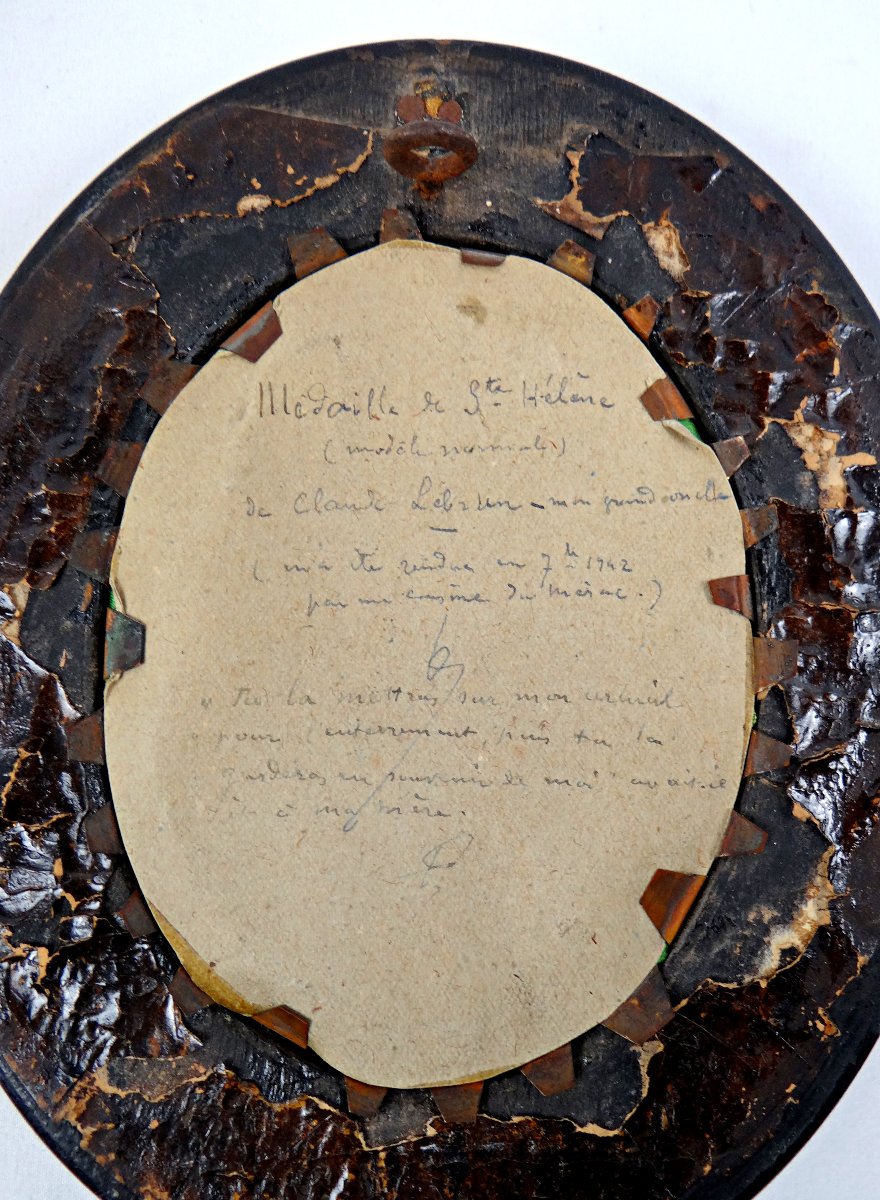 Médaille de Ste Hélène
(modèle normale)
de Claude Lebrun - mon grand oncle
(m'a été rendue en 7bre 1942
par une cousine du .)
" la mettras sur mon cercueil
pour l'enterrement, puis tu la
garderas en souvenir de moi" avait-il
dit à ma mère.